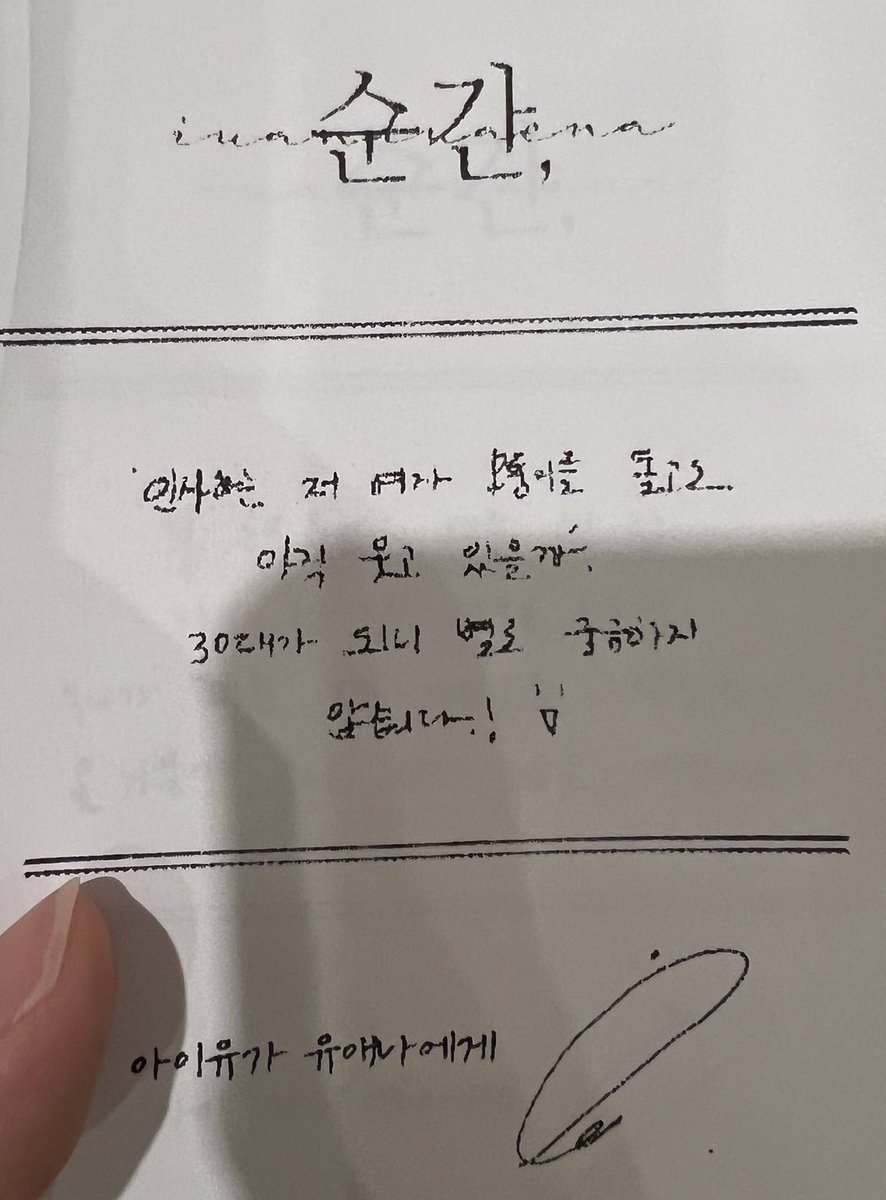 순간,
인사하는 저 여자 모퉁이를 돌고도
아직 웃고 있을까
30대가 되니 별로 궁금하지
않답니다!
아이유가 유애나에게